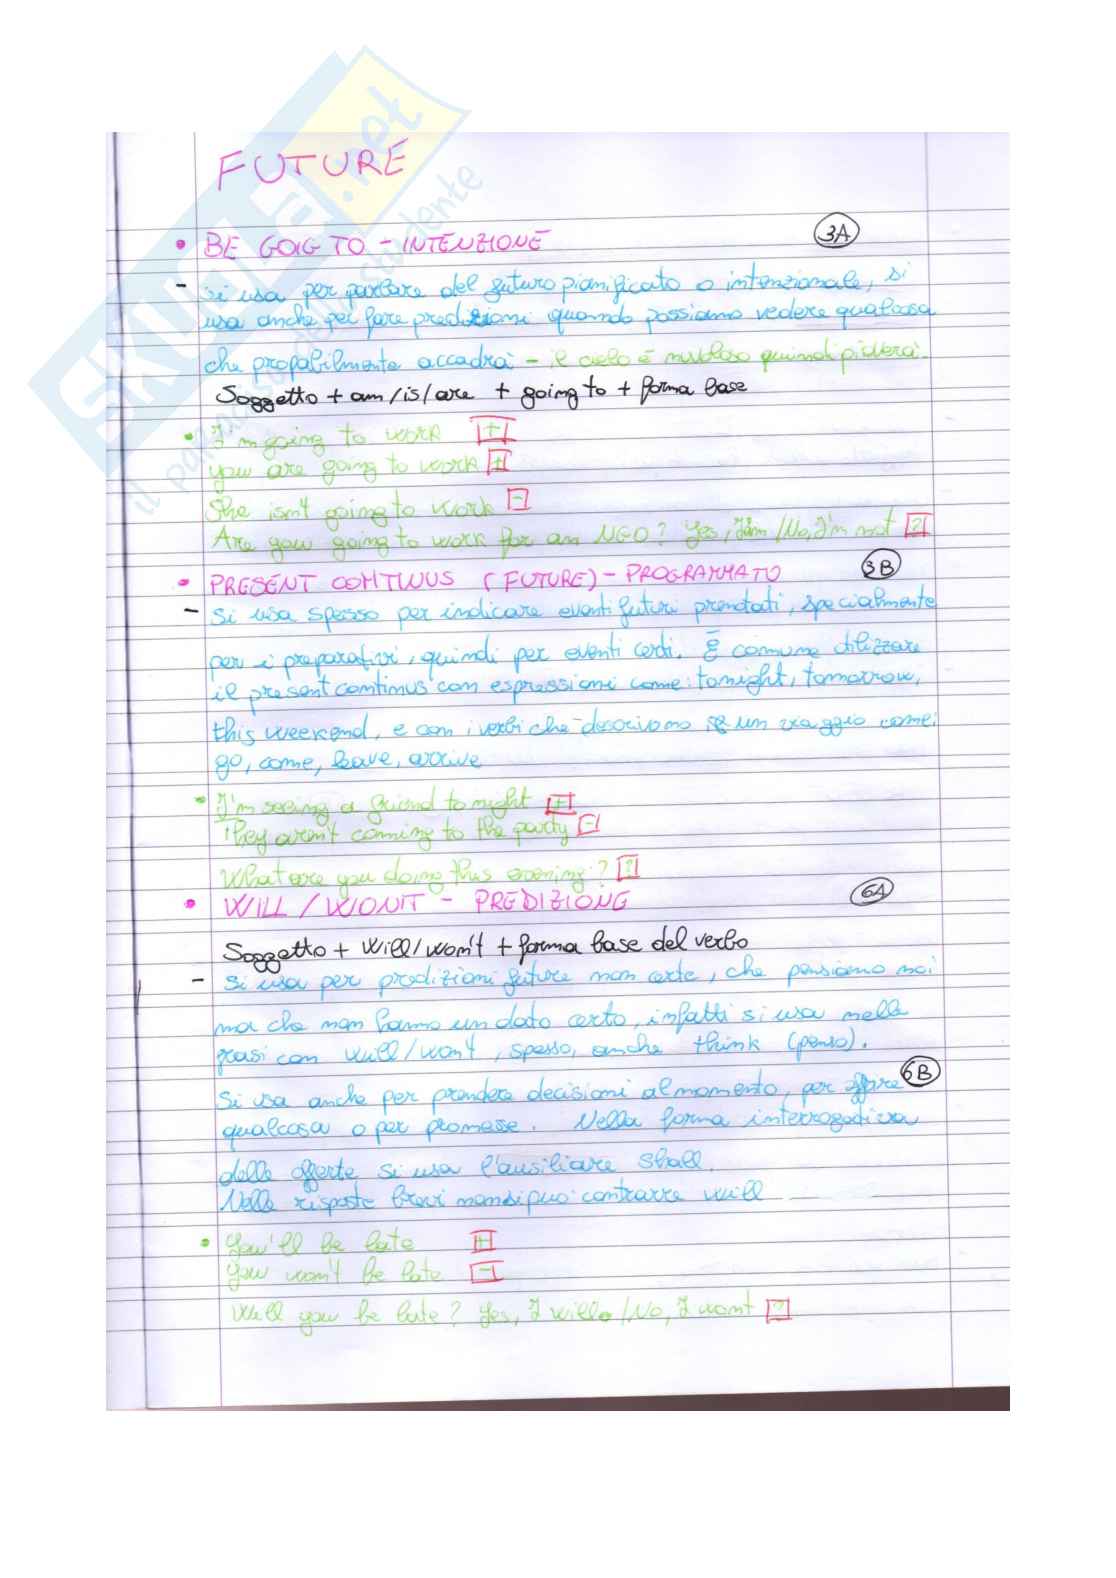 FUTURE
• BE GOIG TO - INTENZIONE 3A
- Si usa per parlare del futuro pianificato o intenzionale, si
usa anche per fare predizioni quando possiamo vedere qualcosa
che propabilmente accadrà - il cielo è nuvoloso quindi pioverà.
Soggetto + am/is/are + going to + forma base
• I'm going to work [+]
you are going to work [+]
She isn't going to work [-]
Are you going to work for an NGO? Yes, I am / No, I'm not [?]
• PRESENT CONTINUUS (FUTURE) - PROGRAMMATO 3B
- Si usa spesso per indicare eventi futuri prenotati, specialmente
per i preparativi, quindi per eventi certi. È comune utilizzare
il present continus con espressioni come: tonight, tomorrow,
this weekend, e con i verbi che descrivono un viaggio come:
go, come, leave, arrive
• I'm seeing a friend tonight [+]
They aren't coming to the party [-]
What are you doing this evening? [?]
• WILL / WON'T - PREDIZIONE 6A
Soggetto + will/won't + forma base del verbo
- Si usa per predizioni future non certe, che pensiamo noi
ma che non hanno un dato certo, infatti si usa nelle
frasi con will/won't, spesso, anche think (penso).
Si usa anche per prendere decisioni al momento, per offrire 6B
qualcosa o per promesse. Nella forma interrogativa
delle offerte si usa l'ausiliare shall.
Nelle risposte brevi non si può contrarre will
• You'll be late [+]
You won't be late [-]
Will you be late? Yes, I will / No, I won't [?]
SKUOLA.net
il paradiso dello studente